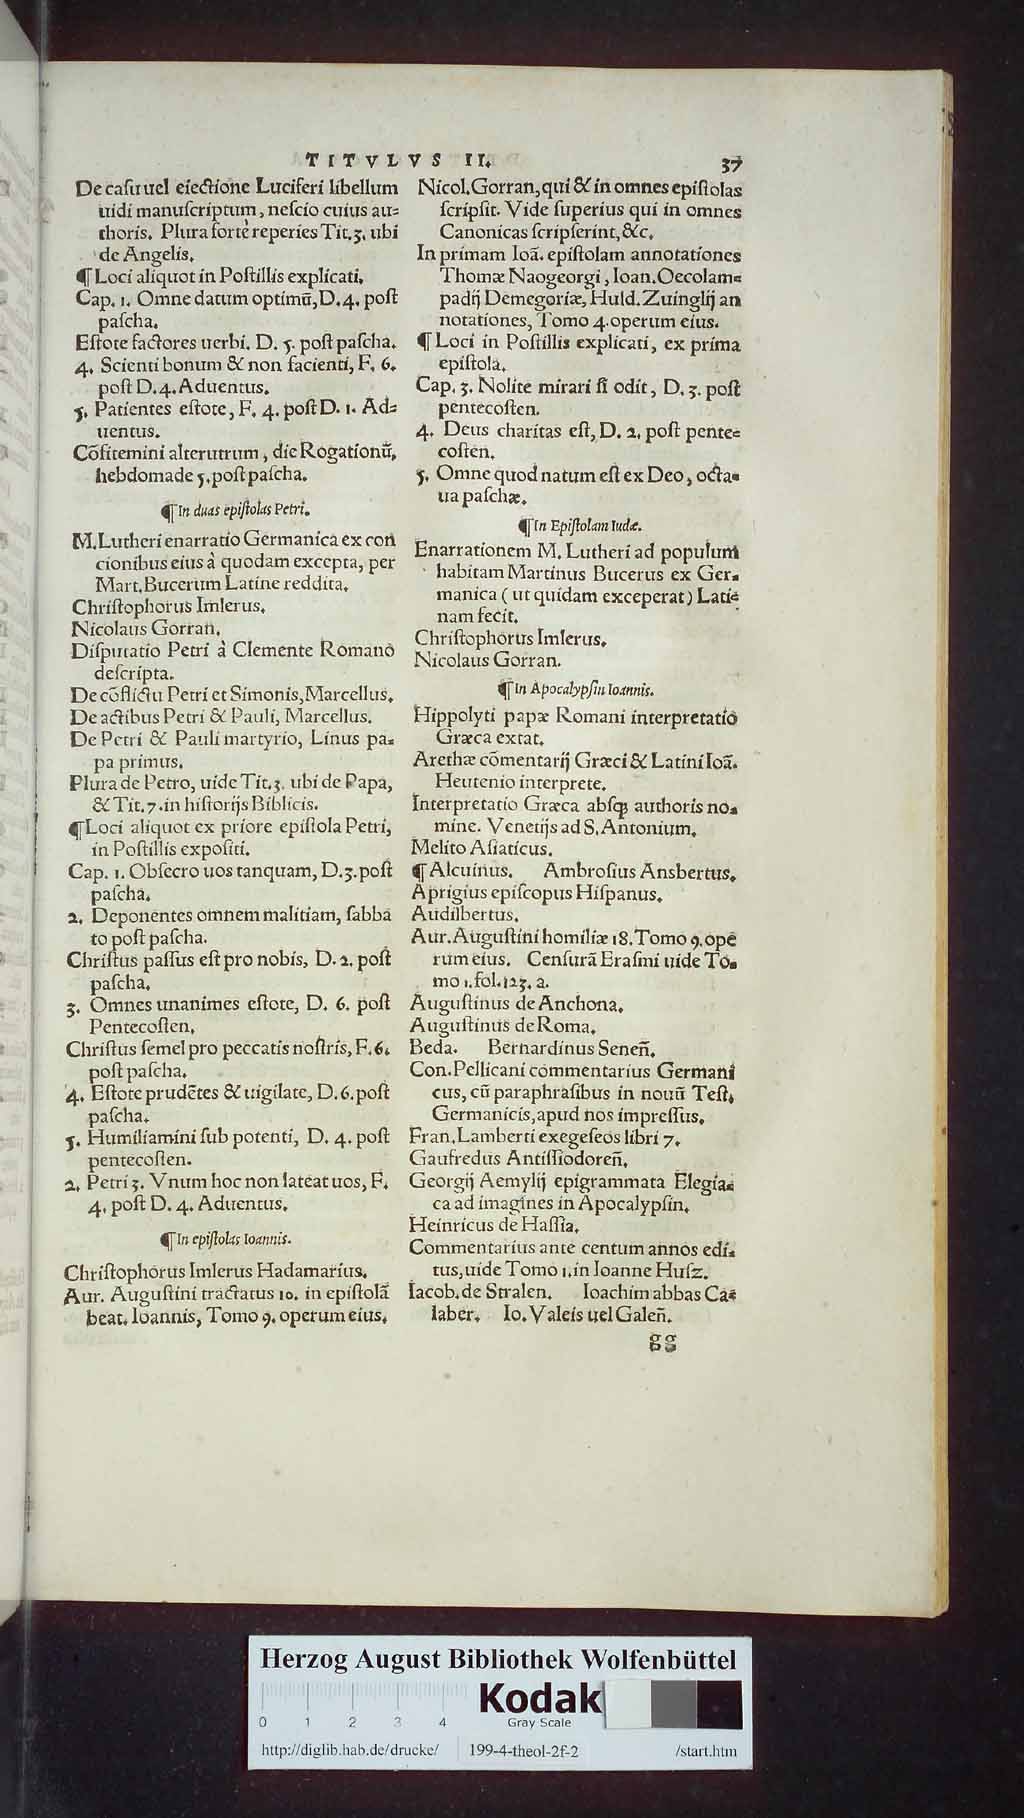 TITVLVS II. 37
De casu uel eiectione Luciferi libellum
uidi manuscriptum, nescio cuius au=
thoris. Plura fortè reperies Tit. 3. ubi
de Angelis.
¶ Loci aliquot in Postillis explicati.
Cap. 1. Omne datum optimū, D. 4. post
pascha.
Estote factores uerbi. D. 5. post pascha.
4. Scienti bonum & non facienti, F. 6.
post D. 4. Aduentus.
5. Patientes estote, F. 4. post D. 1. Ad=
uentus.
Cōfitemini alterutrum, die Rogationū,
hebdomade 5. post pascha.
¶ In duas epistolas Petri.
M. Lutheri enarratio Germanica ex con
cionibus eius à quodam excepta, per
Mart. Bucerum Latine reddita.
Christophorus Imlerus.
Nicolaus Gorran.
Disputatio Petri à Clemente Romano
descripta.
De cōflictu Petri et Simonis, Marcellus.
De actibus Petri & Pauli, Marcellus.
De Petri & Pauli martyrio, Linus pa=
pa primus.
Plura de Petro, uide Tit. 3. ubi de Papa,
& Tit. 7. in historijs Biblicis.
¶ Loci aliquot ex priore epistola Petri,
in Postillis expositi.
Cap. 1. Obsecro uos tanquam, D. 3. post
pascha.
2. Deponentes omnem malitiam, sabba
to post pascha.
Christus passus est pro nobis, D. 2. post
pascha.
3. Omnes unanimes estote, D. 6. post
Pentecosten.
Christus semel pro peccatis nostris, F. 6.
post pascha.
4. Estote prudētes & uigilate, D. 6. post
pascha.
5. Humiliamini sub potenti, D. 4. post
pentecosten.
2. Petri 3. Vnum hoc non lateat uos, F.
4. post D. 4. Aduentus.
¶ In epistolas Ioannis.
Christophorus Imlerus Hadamarius.
Aur. Augustini tractatus 10. in epistolā
beat. Ioannis, Tomo 9. operum eius.
Nicol. Gorran, qui & in omnes epistolas
scripsit. Vide superius qui in omnes
Canonicas scripserint, &c.
In primam Ioā. epistolam annotationes
Thomæ Naogeorgi, Ioan. Oecolam=
padij Demegoriæ, Huld. Zuinglij an
notationes, Tomo 4. operum eius.
¶ Loci in Postillis explicati, ex prima
epistola.
Cap. 3. Nolite mirari si odit, D. 3. post
pentecosten.
4. Deus charitas est, D. 2. post pente=
costen.
5. Omne quod natum est ex Deo, octa=
ua paschæ.
¶ In Epistolam Iudæ.
Enarrationem M. Lutheri ad populum
habitam Martinus Bucerus ex Ger=
manica (ut quidam exceperat) Lati=
nam fecit.
Christophorus Imlerus.
Nicolaus Gorran.
¶ In Apocalypsin Ioannis.
Hippolyti papæ Romani interpretatio
Græca extat.
Arethæ cōmentarij Græci & Latini Ioā.
Heutenio interprete.
Interpretatio Græca absq; authoris no=
mine. Venetijs ad S. Antonium.
Melito Asiaticus.
¶ Alcuinus. Ambrosius Ansbertus.
Aprigius episcopus Hispanus.
Audilbertus.
Aur. Augustini homiliæ 18. Tomo 9. ope
rum eius. Censurā Erasmi uide To=
mo 1. fol. 123. a.
Augustinus de Anchona.
Augustinus de Roma.
Beda. Bernardinus Seneñ.
Con. Pellicani commentarius Germani
cus, cū paraphrasibus in nouū Test.
Germanicis, apud nos impressus.
Fran. Lamberti exegeseos libri 7.
Gaufredus Antissiodoreñ.
Georgij Aemylij epigrammata Elegia=
ca ad imagines in Apocalypsin.
Heinricus de Hassia.
Commentarius ante centum annos edi=
tus, uide Tomo 1. in Ioanne Husz.
Iacob. de Stralen. Ioachim abbas Ca=
laber. Io. Valeis uel Galeñ.
gg
Herzog August Bibliothek Wolfenbüttel
Kodak
Gray Scale
0 1 2 3 4
http://diglib.hab.de/drucke/ 199-4-theol-2f-2 /start.htm